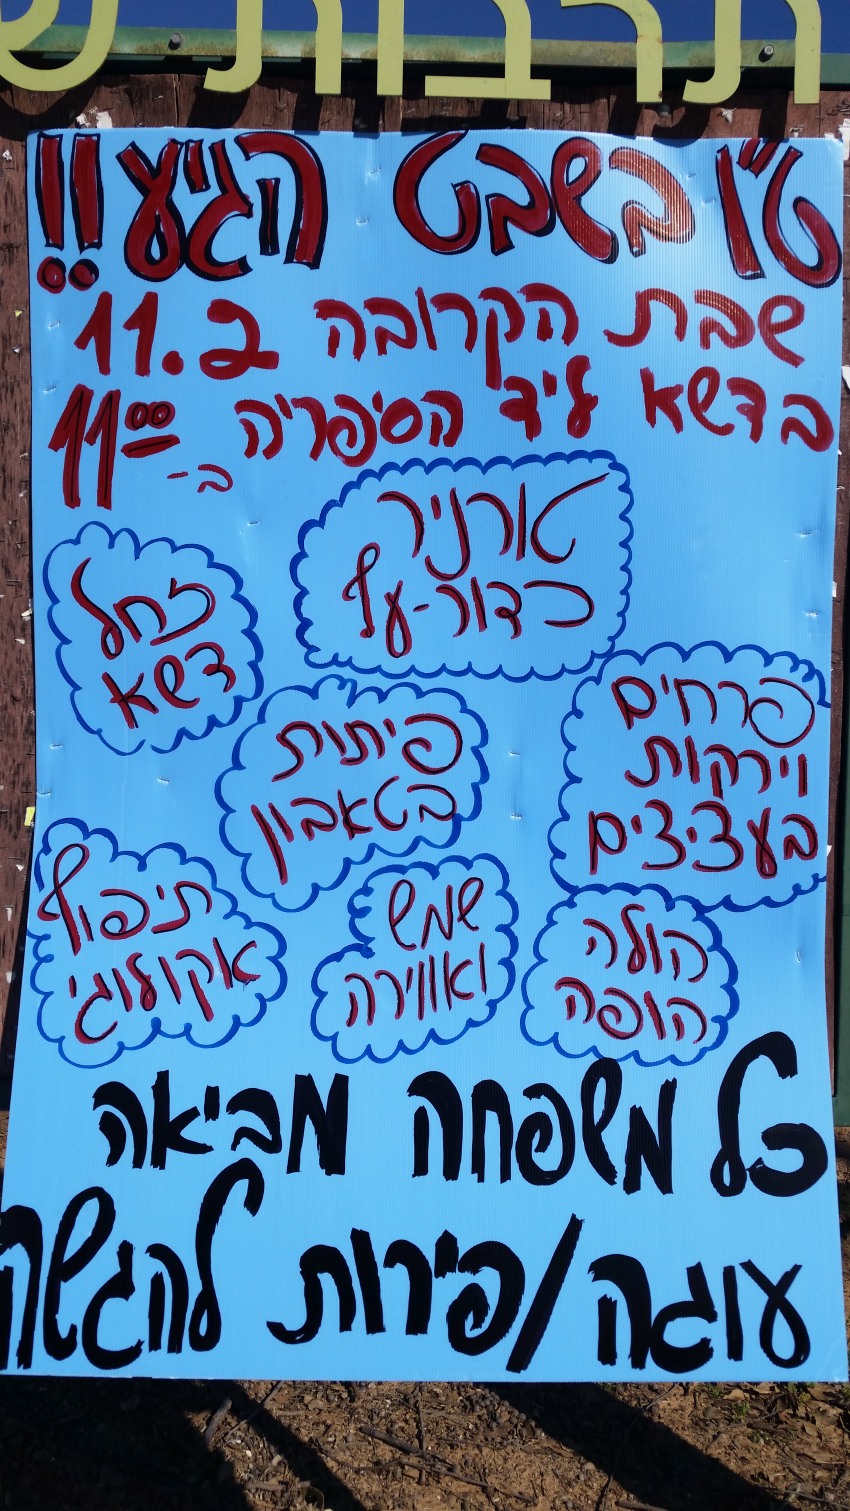 תרבות
ט"ו בשבט הגיע!!
שבת הקרובה 11.2
בדשא ליד הספריה
ב- 11:00
טורניר
כדור-עף
זחל
דשא
פרחים
וירקות
בעציצים
פיתות
בטאבון
תיפוף
אקולוגי
שמש
ואווירה
הולה
הופה
כל משפחה מביאה
עוגה/פירות להגשה